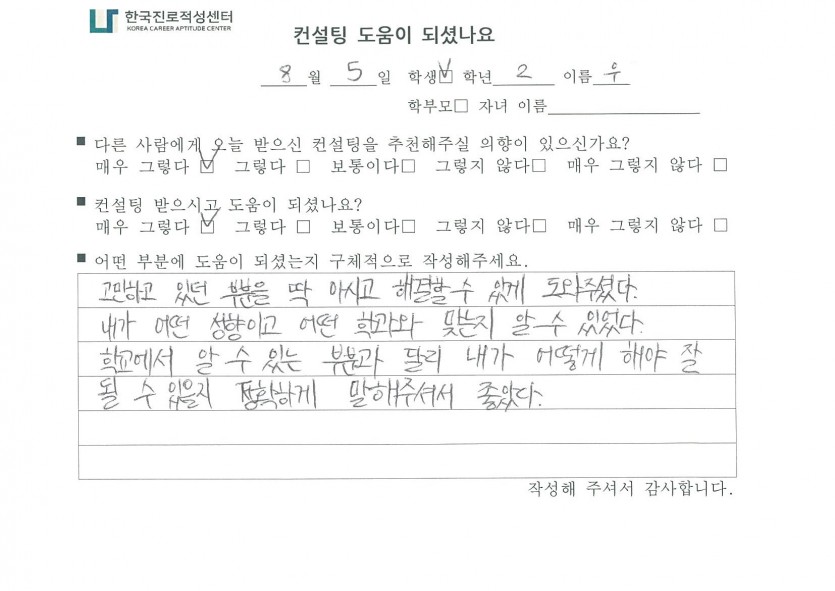 한국진로적성센터
KOREA CAREER APTITUDE CENTER
컨설팅 도움이 되셨나요
8 월 5 일 학생☑ 학년 2 이름 우
학부모□ 자녀 이름
■ 다른 사람에게 오늘 받으신 컨설팅을 추천해주실 의향이 있으신가요?
매우 그렇다 ☑ 그렇다 □ 보통이다□ 그렇지 않다□ 매우 그렇지 않다 □
■ 컨설팅 받으시고 도움이 되셨나요?
매우 그렇다 ☑ 그렇다 □ 보통이다□ 그렇지 않다□ 매우 그렇지 않다 □
■ 어떤 부분에 도움이 되셨는지 구체적으로 작성해주세요.
고민하고 있던 부분을 딱 아시고 해결할 수 있게 도와주셨다.
내가 어떤 성향이고 어떤 학과와 맞는지 알 수 있었다.
학교에서 알 수 있는 부분과 달리 내가 어떻게 해야 잘
될 수 있을지 정확하게 말해주셔서 좋았다.
작성해 주셔서 감사합니다.